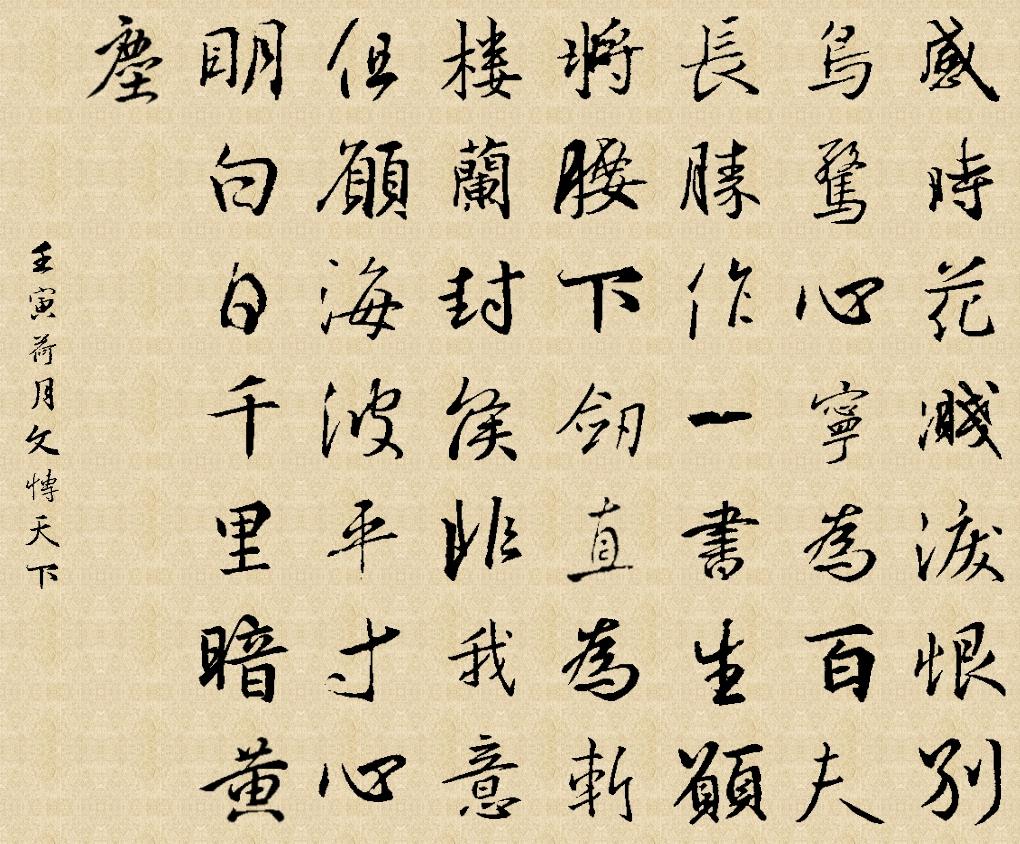 感時花濺淚恨別
鳥驚心寧為百夫
長勝作一書生願
將腰下劍直為斬
樓蘭封侯非我意
但願海波平寸心
明白日千里暗黄
塵
壬寅荷月文愽天下